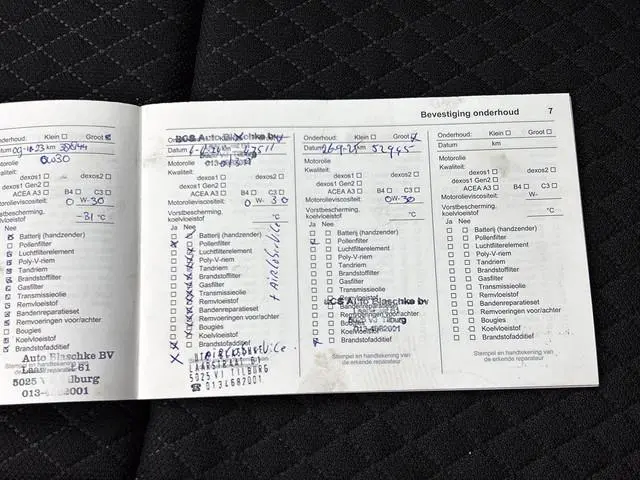 Bevestiging onderhoud 7
Onderhoud: Klein Groot
Datum 09- -23 km
Motorolie 0W30
Kwaliteit:
dexos1 dexos2
dexos1 Gen2
ACEA A3 B4 C3
Motorolieviscositeit: 0 W-30
Vorstbescherming,
koelvloeistof -31 °C
Nee
Batterij (handzender)
Pollenfilter
Luchtfilterelement
Poly-V-riem
Tandriem
Brandstoffilter
Gasfilter
Transmissieolie
Remvloeistof
Bandenreparatieset
Remvoeringen voor/achter
Bougies
Koelvloeistof
Brandstofadditief
Auto Blaschke BV
Stempel en handtekening van
de erkende reparateur
Laarstraat 61
5025 V Tilburg
013-4682001
BCS Auto Blaschke bv
Datum km
Motorolie
Kwaliteit:
dexos1 dexos2
dexos1 Gen2
ACEA A3 B4 C3
Motorolieviscositeit: 0 W- 30
Vorstbescherming,
koelvloeistof °C
Ja Nee
Batterij (handzender)
Pollenfilter
Luchtfilterelement
Poly-V-riem
Tandriem
Brandstoffilter
Gasfilter
Transmissieolie
Remvloeistof
Bandenreparatieset
Remvoeringen voor/achter
Bougies
Koelvloeistof
Brandstofadditief
+ AircoService
LAARSTRAAT 61
5025 VJ TILBURG
☎ 013 4682001
Onderhoud: Klein Groot
Datum 26-9-25 km 52945
Motorolie
Kwaliteit:
dexos1 dexos2
dexos1 Gen2
ACEA A3 B4 C3
Motorolieviscositeit: 0W-30
Vorstbescherming,
koelvloeistof °C
Ja Nee
Batterij (handzender)
Pollenfilter
Luchtfilterelement
Poly-V-riem
Tandriem
Brandstoffilter
Gasfilter
Transmissieolie
Remvloeistof
BCS Auto Blaschke bv
Bandenreparatieset
Remvoeringen voor/achter
5025 VJ Tilburg
Bougies
013-4682001
Koelvloeistof
Brandstofadditief
Stempel en handtekening van
de erkende reparateur
Onderhoud: Klein Groot
Datum km
Motorolie
Kwaliteit:
dexos1 dexos2
dexos1 Gen2
ACEA A3 B4 C3
Motorolieviscositeit: W-
Vorstbescherming,
koelvloeistof °C
Ja Nee
Batterij (handzender)
Pollenfilter
Luchtfilterelement
Poly-V-riem
Tandriem
Brandstoffilter
Gasfilter
Transmissieolie
Remvloeistof
Bandenreparatieset
Remvoeringen voor/achter
Bougies
Koelvloeistof
Brandstofadditief
Stempel en handtekening van
de erkende reparateur